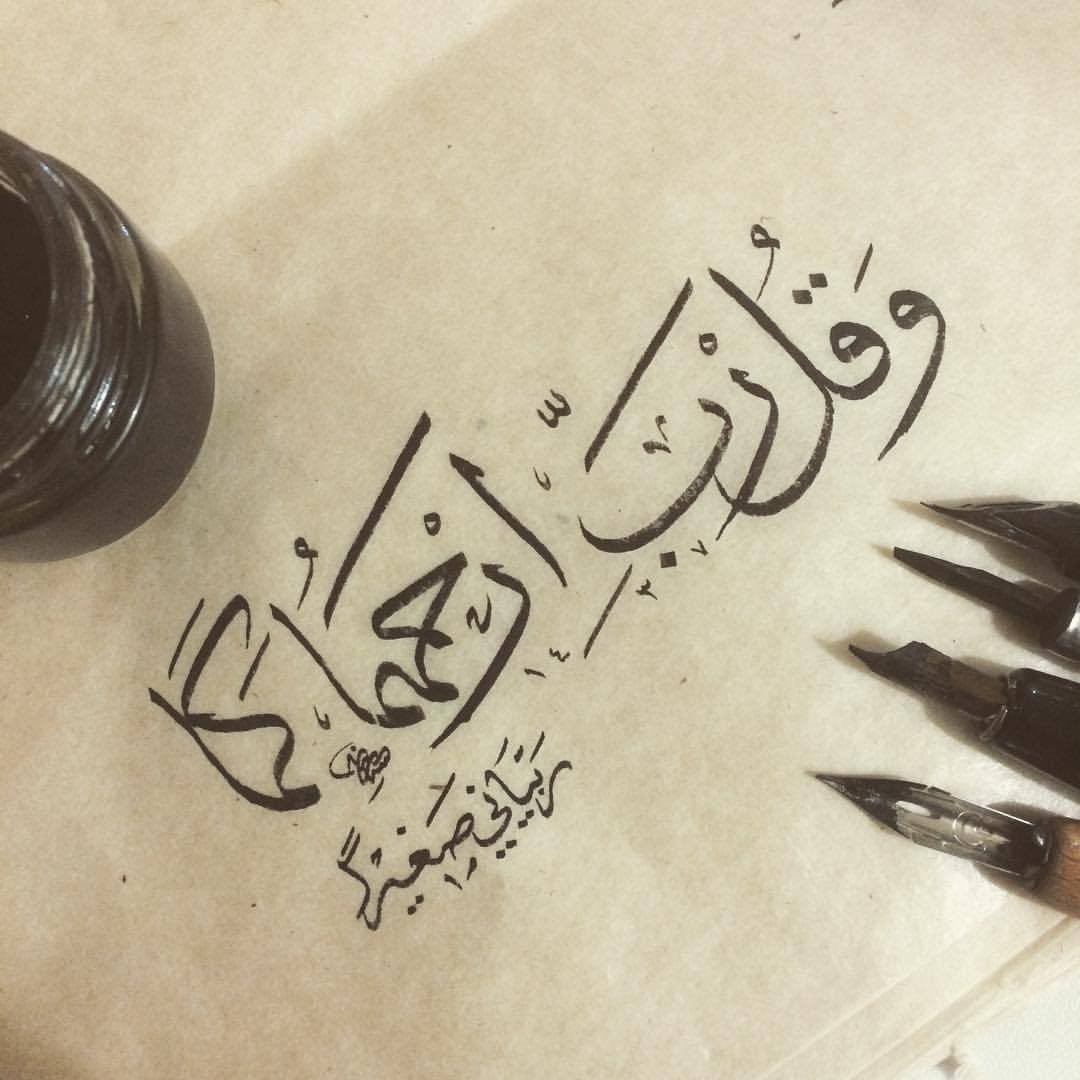 وَقُل رَّبِّ ارْحَمْهُمَا كَمَا
رَبَّيَانِي صَغِيرًا